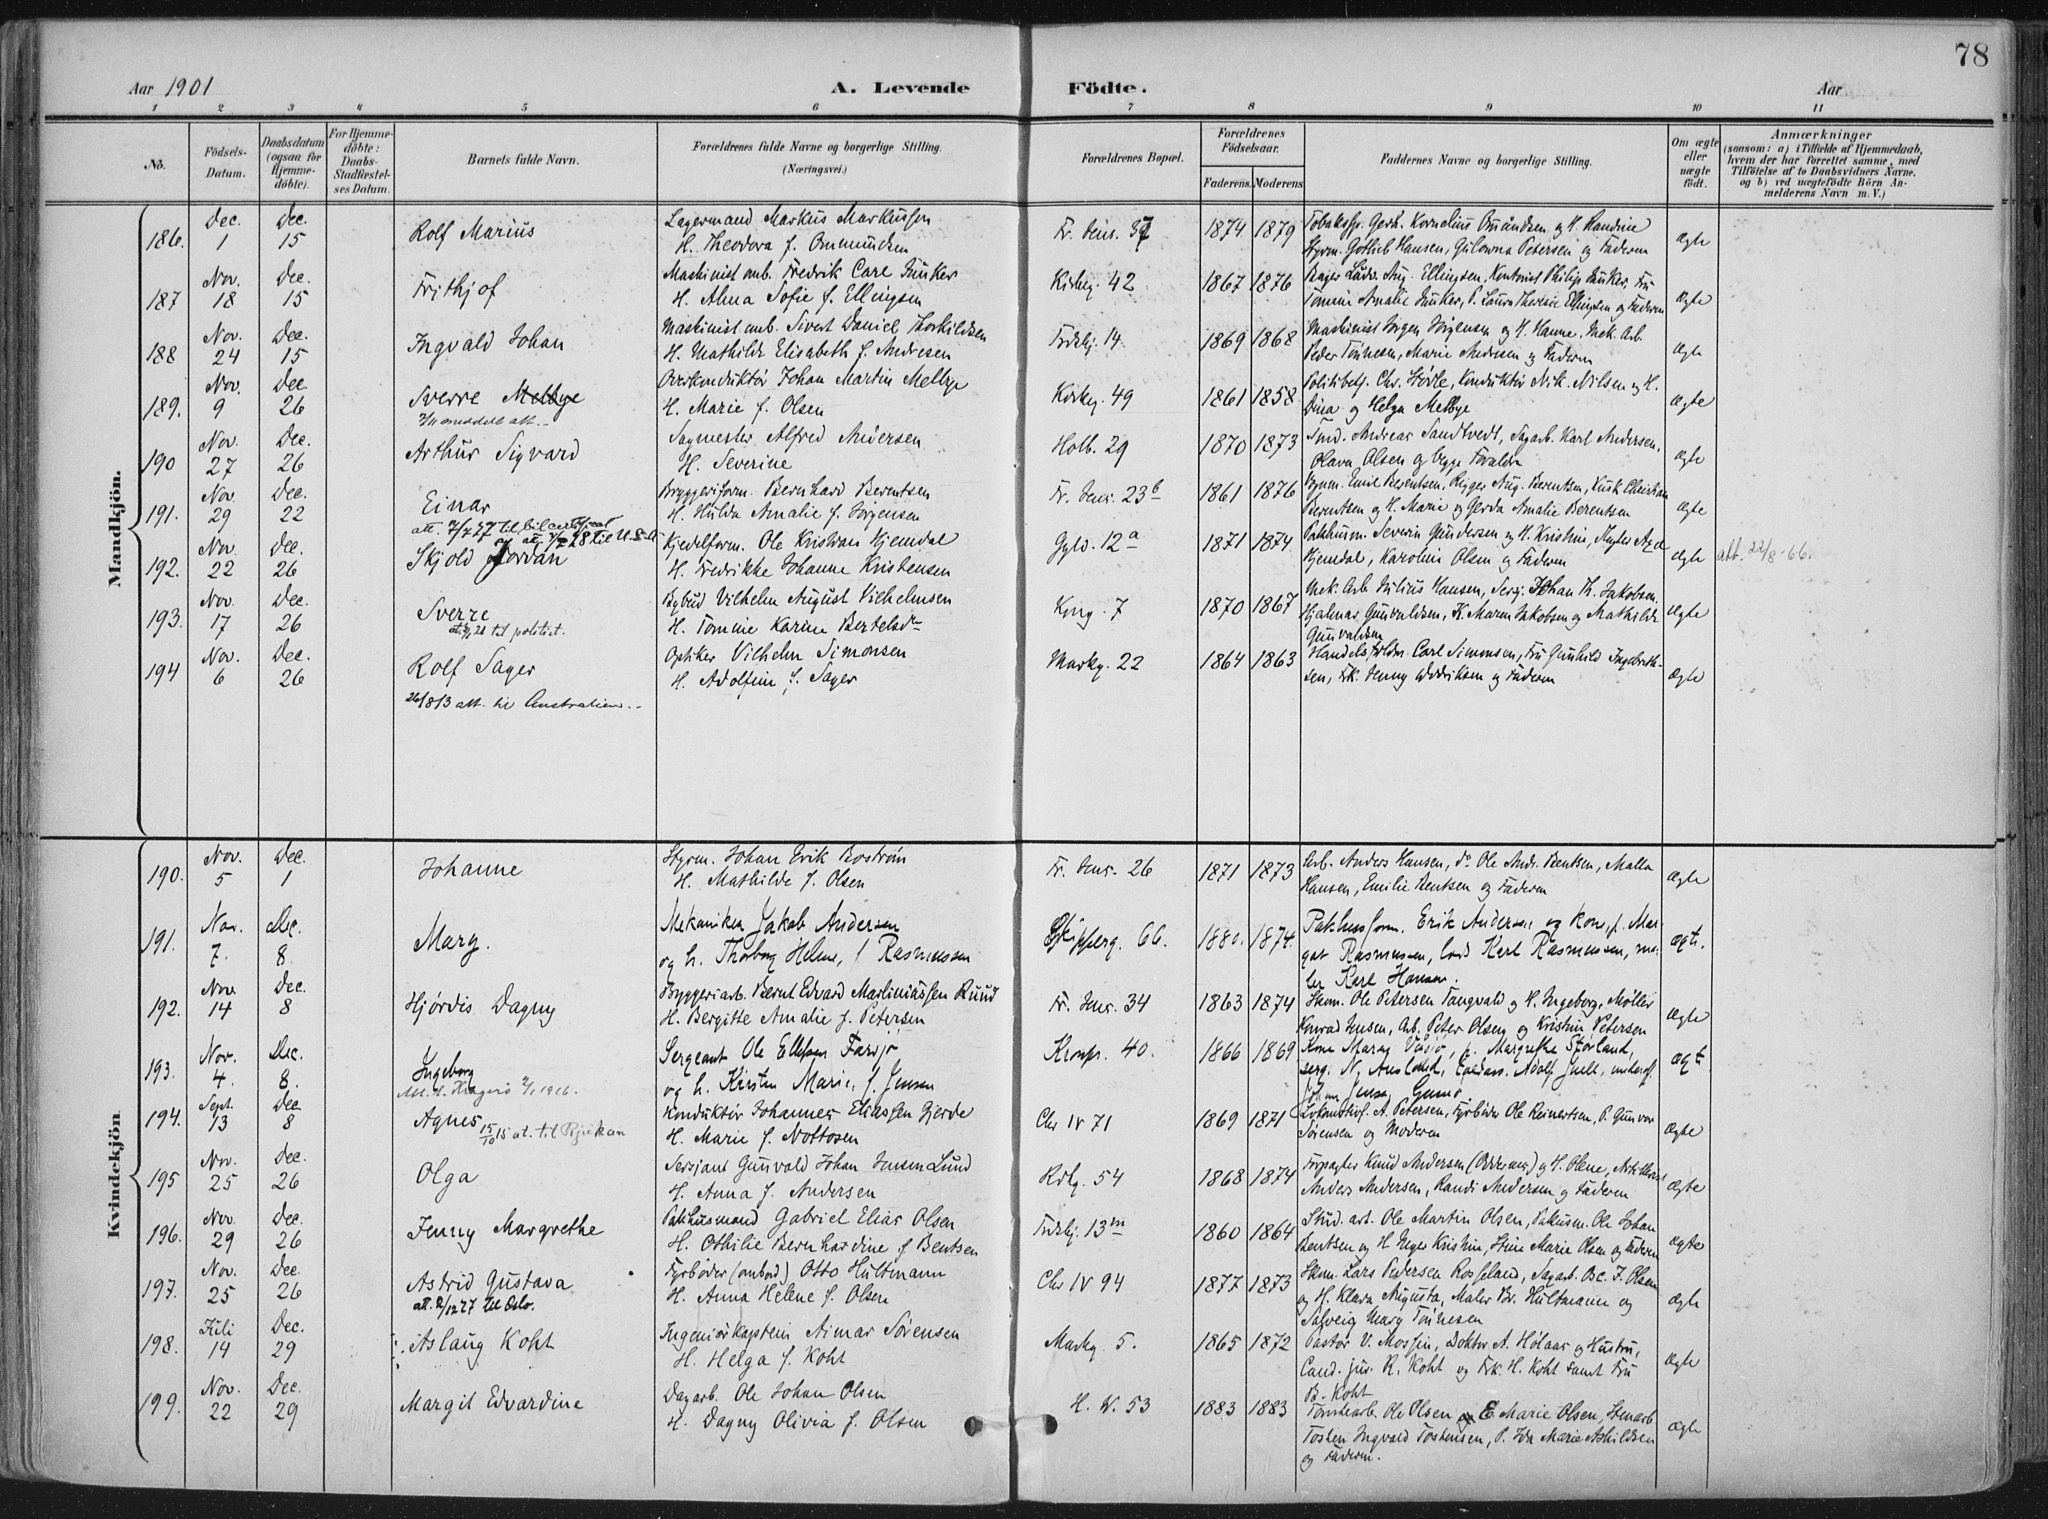 78
Aar 1901
A. Levende Födte.
Aar
1 2 3 4 5 6 7 8 9 10 11
No.
Födsels-Datum.
Daabsdatum (ogsaa for Hjemme-döbte).
For Hjemme-döbte: Daabs-Stadfæstel-ses Datum.
Barnets fulde Navn.
Forældrenes fulde Navne og borgerlige Stilling. (Næringsvei.)
Forældrenes Bopæl.
Forældrenes Födselsaar.
Faderens. Moderens
Faddernes Navne og borgerlige Stilling.
Om ægte eller uægte födt.
Anmærkninger
(saasom: a) i Tilfælde af Hjemmedaab, hvem der har forrettet samme, med Tilföielse af to Daabsvidners Navne. og b) ved uægtefödte Börn An-melderens Navn m. V.)
Mandkjön.
186. Dec. 1 Dec. 15 Rolf Marius Lagermand Markus Markussen Fr. Jens. 1874 1879 Kornelius og H. Randine ægte
H. Theodora f. Ommundsen Styrm. Gotlieb Hansen, Petersen og Faderen
187 Nov. 18 Dec. 15 Frithjof Maskinist omb. Fredrik Carl Junker Kirkeg. 42 1867 1876 Aug. Ellingsen, Kontorist Philip Junker, Fru ægte
H. Alma Sofie f. Ellingsen Tomine Amalie Junker, P. Laura Therese Ellingsen og Faderen
188 Nov. 24 Dec. 15 Ingvald Johan Maskinist omb. Sivert Daniel Thorkildsen 14 1869 1868 Maskinist Jörgen Jörgensen og H. Hanne. Mek. Arb. ægte
H. Mathilde Elisabeth f. Andresen Peder Tönnesen, Marie Andresen og Faderen
189. Nov. 9 Dec. 26 Sverre Melbye Overkonduktör Johan Martin Melbye Kirkeg. 49 1861 1858 Politibetj. Chr. Störle, Konduktör Nik. Nilsen og H. ægte
H. Marie f. Olsen Dina og Helga Melbye
190 Nov. 27 Dec. 26 Arthur Sigvard Sagmester Alfred Andersen Holb. 29 1870 1873 Andreas Sandtvedt, Sagarb. Karl Andersen, ægte
H. Severine Olava Olsen og begge Foreldre
191. Nov. 29 Dec. 22 Einar Bryggeriform. Bernhard Berentsen Fr. Jens. 23 b 1861 1876 Emil Berentsen, Rigger Aug. Berentsen, Kusk Christian ægte
H. Hulda Amalie f. Jörgensen Berentsen og H. Marie og Gerda Amalie Berentsen
192. Nov. 22 Dec. 26 Skjold Jordan Kjedelform. Ole Kristian Hjemdal Gyld. 12 a 1871 1874 Pakhusm. Severin Gundersen og H. Kristine, Axel ægte att. 22/8-66.
H. Fredrikke Johanne Kristensen Hjemdal, Karoline Olsen og Faderen
193. Nov. 17 Dec. 26 Sverre Bybud Vilhelm August Vilhelmsen Kong. 7 1870 1867 Mek. Arb. Julius Hansen, Serg. Johan Th. Jakobsen, ægte
til politiet. H. Tomine Karine Bertelsdr Hjalmar Gunvaldsen, K. Maren Jakobsen og Mathilde
Gunvaldsen
194 Nov. 6 Dec. 26 Rolf Sager Optiker Vilhelm Simonsen Markg. 22 1864 1863 Carl Simonsen, Fru Gunhild Ingebreth- ægte
H. Adolfine f. Sager sen, Frk. Jenny Wedriksen og Faderen
26/8 13 att. til Australien.
Kvindekjön
190. Nov. 5 Dec. 1 Johanne Styrm. Johan Erik Boström Fr. Jens. 26 1871 1873 Arb. Anders Hansen, do Ole Andr. Bentsen, Malla ægte
H. Mathilde f. Olsen Hansen, Emilie Bentsen og Faderen
191. Nov. 7. Dec. 8. Mary. Mekaniker Jakob Andersen Skipperg. 66. 1880. 1874. Pakhusform. Erik Andersen og kone, p. Mar- ægte.
og h. Thorborg Helene, f Rasmussen gat Rasmussen, Karl Rasmussen, ma-
ler Karl Hansen.
192. Nov 14 Dec 8 Hjördis Dagny Bryggeriarb. Bernt Edvard Martiniussen Ruud Fr. Jens. 34 1863 1874 Ole Petersen Tangvald og H. Ingeborg, Möller ægte
H. Bergitte Amalie f. Petersen Konrad Jensen, Arb. Peter Olsen og Kristine Petersen
193. Nov. 4. Dec. 8. Ingeborg Sergeant Ole Ellefsen Farsjø Kronpr. 40. 1866 1869 Kone p. Margrethe Störland, ægt
Att. t. Kragerö 2/1 1916. og h. Kirsten Marie, f. Jensen serg. N. Adolf Juell, underof.
Johan
194. Sept. 13 Dec 8 Agnes Konduktör Johannes Eliassen Gjerde Chr IV 71 1869 1871 A. Petersen, Fyrböder Ole Reinertsen, P. Gunvor ægte
15/10 15 at. til Rjukan H. Marie f. Nottosen Sörensen og Moderen
195 Nov. 25 Dec. 26 Olga Sersjant Gunvald Johan Jensen Lund Rdlg. 54 1868 1874 Forpagter Knud Andersen (Odderneş) og H. Olene, ægte
H. Anna f. Andersen Anders Andersen, Randi Andersen og Faderen
196. Nov. 29 Dec. 26 Jenny Margrethe Pakhusmand Gabriel Elias Olsen 13 1860 1864 Stud. art. Ole Martin Olsen, Pakusm. Ole Johan ægte
H. Othilie Bernhardine f Bentsen Bentsen og H. Inger Kristin, Stine Marie Olsen og Faderen
197. Nov. 25 Dec. 26 Astrid Gustava Fyrböder (ombord) Otto Hultmann Chr IV 94 1877 1873 Lars Pedersen Rosseland, Sagarb. Osc. F. Olsen ægte
att. 2/12 27 til Oslo. H. Anna Helene f. Olsen og H. Klara Augusta, Maler Br. Hultmann og
Solveig Mary Tönnesen
198. Juli 14 Dec. 29 Aslaug Koht Ingeniörkaptein Aimar Sörensen Markg. 5. 1865 1872 Pastor V. Mossin, Doktor A. Hölaas og Hustru, ægte
H. Helga f. Koht Cand. jur. R. Koht og Frk. H. Koht samt Fru
B. Koht
199. Nov. 22 Dec. 29 Margit Edvardine Dagarb. Ole Johan Olsen H. W. 53 1883 1883 Töndearb. Ole Olsen og E. Marie Olsen, Stenarb. ægte
H. Dagny Olivia f. Olsen Tosten Ingvald Tostensen, P. Ida Marie Askildsen
og Faderen.